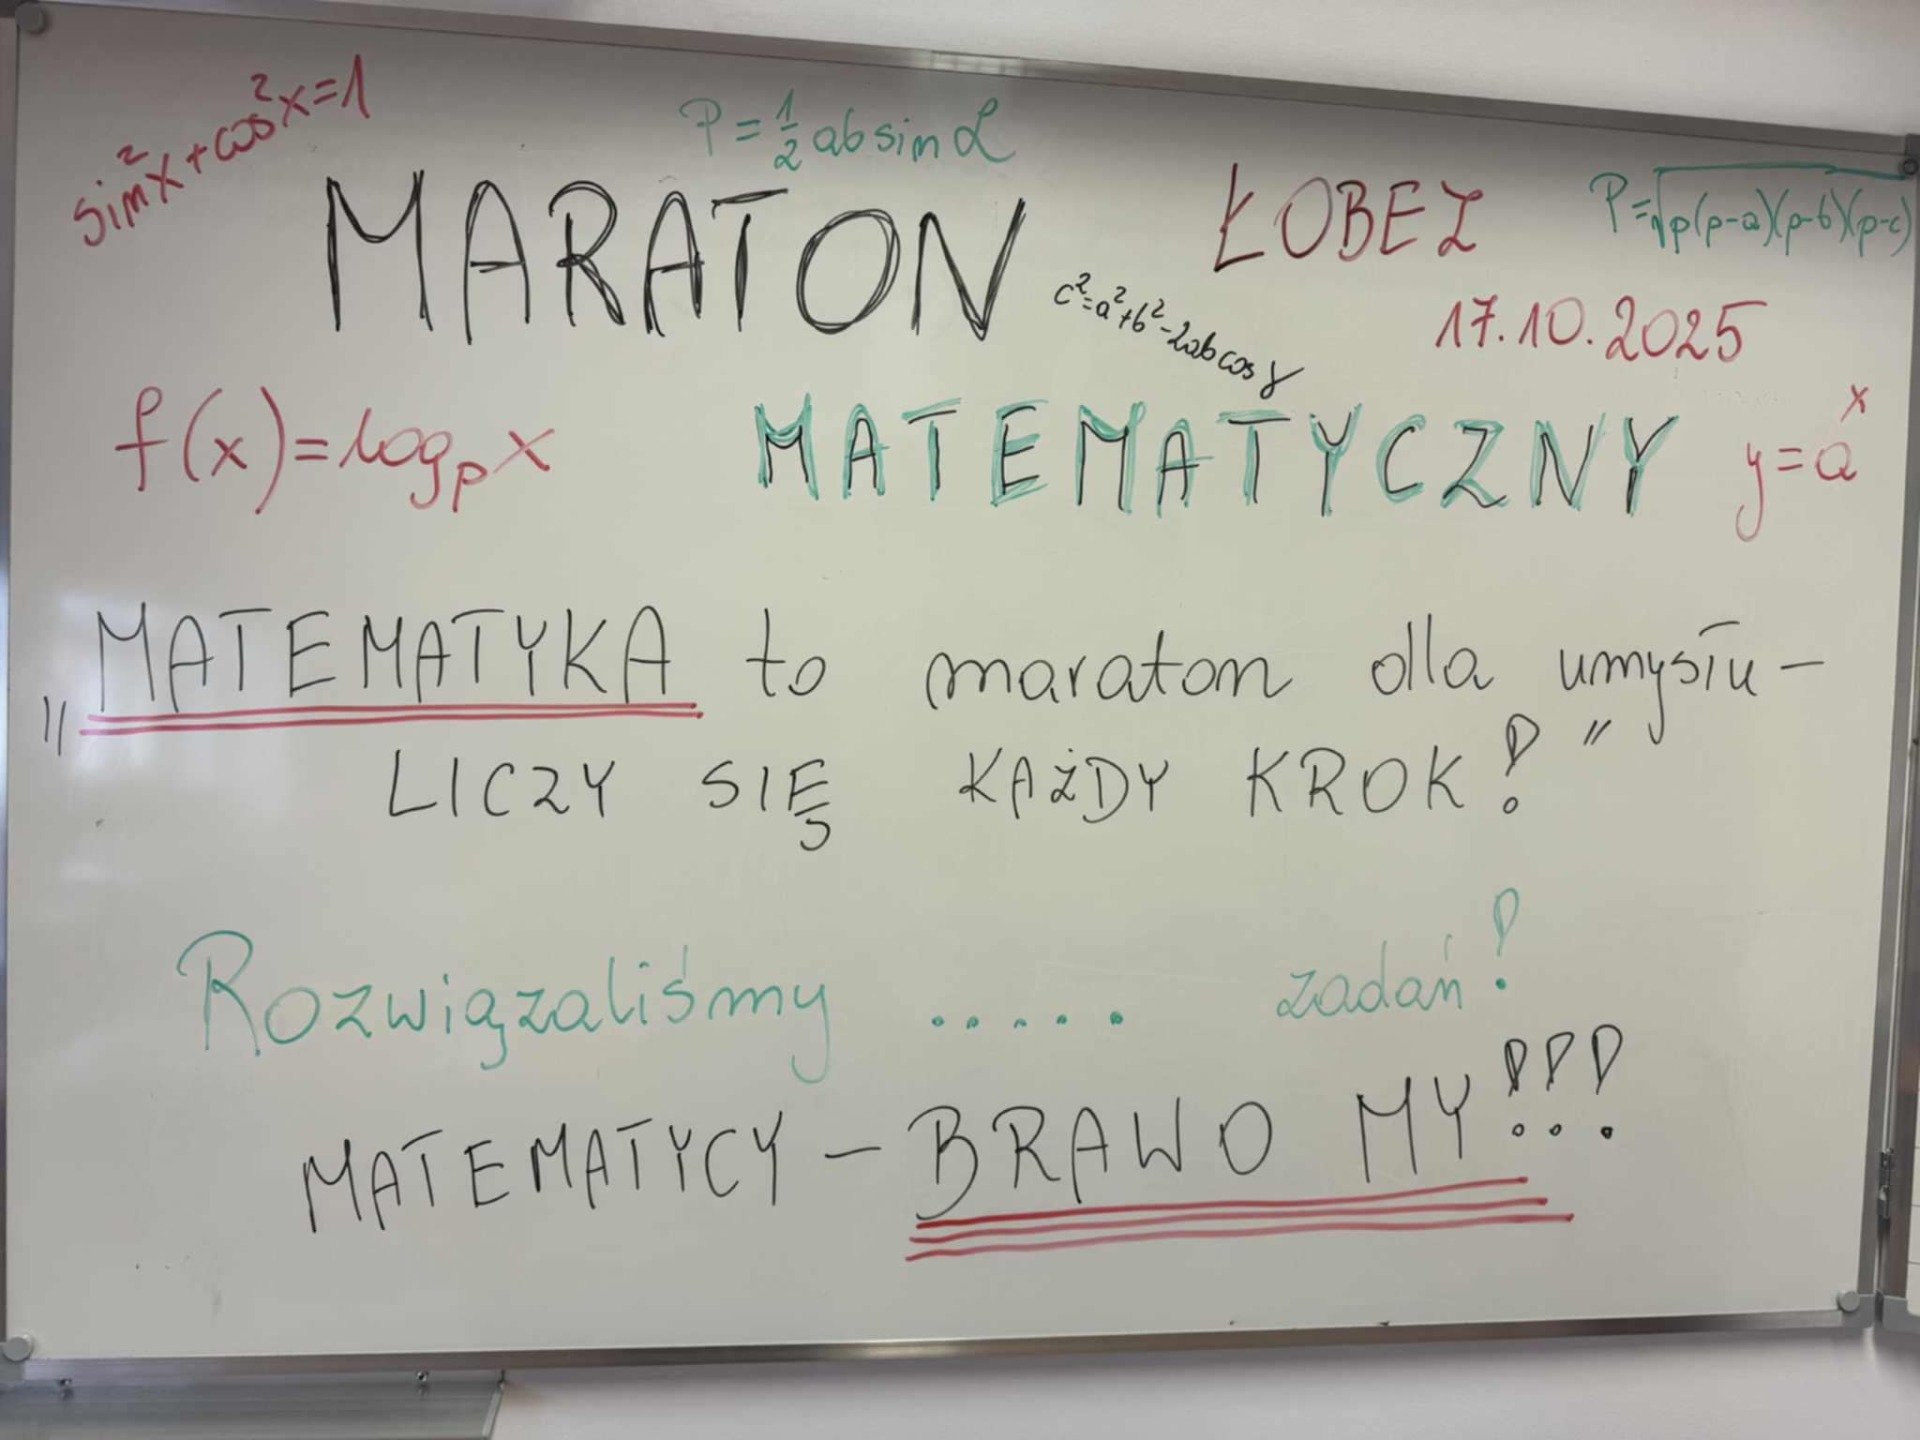 sin²x+cos²x=1
P=½ab sin α
MARATON
ŁOBEZ
P=√p(p-a)(p-b)(p-c)
c²=a²+b²-2ab cos γ
17.10.2025
f(x)=logₚx
MATEMATYCZNY
y=aˣ
„MATEMATYKA to maraton dla umysłu -
LICZY SIĘ KAŻDY KROK!”
Rozwiązaliśmy ..... zadań!
MATEMATYCY - BRAWO MY!!!